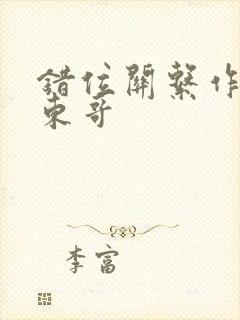 錯位關繫作
東哥
李富